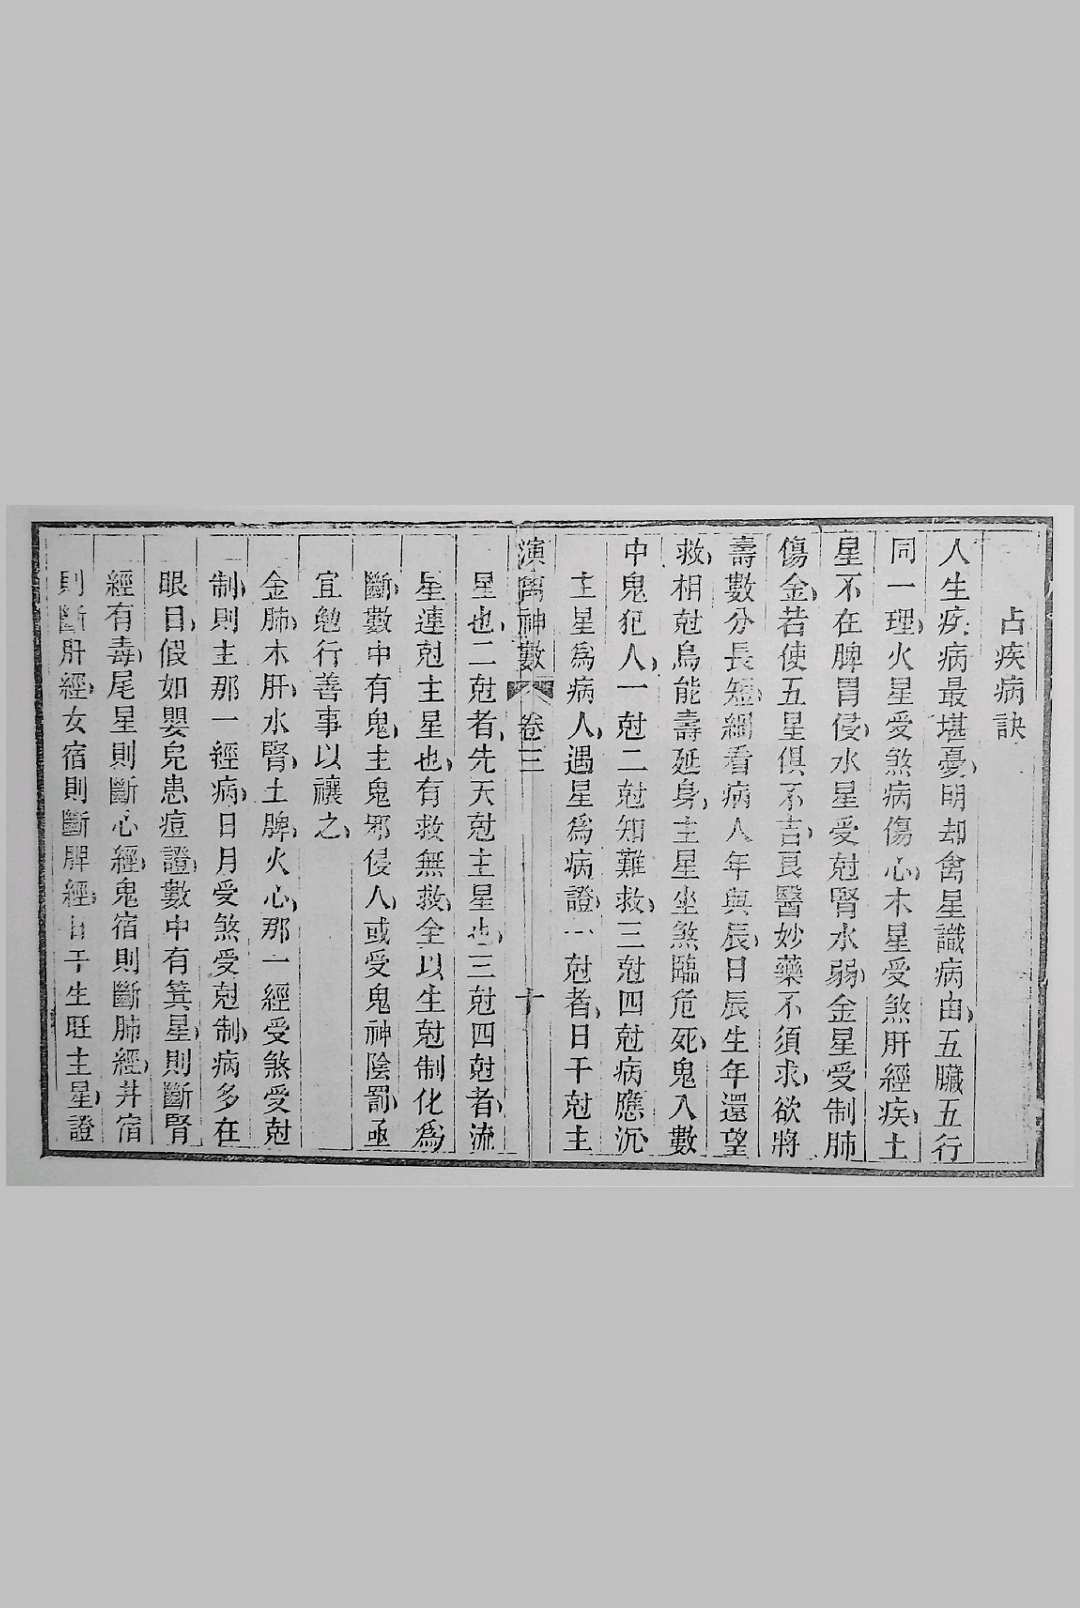 占疾病訣
人生疾病最堪憂明却禽星識病由五臟五行
同一理火星受煞病傷心木星受煞肝經疾土
星不在脾胃侵水星受尅腎水弱金星受制肺
傷金若使五星俱不吉良醫妙藥不須求欲將
壽數分長短細看病人年與辰日辰生年還望
救相尅烏能壽延身主星坐煞臨危死鬼入數
中鬼犯人一尅二尅知難救三尅四尅病應沉
主星爲病人遇星爲病證一尅者日干尅主
演禽神數 卷三 十
星也二尅者先天尅主星也三尅四尅者流
星連尅主星也有救無救全以生尅制化爲
斷數中有鬼主鬼邪侵人或受鬼神陰罰亟
宜勉行善事以禳之
金肺木肝水腎土脾火心那一經受煞受尅
制則主那一經病日月受煞受尅制病多在
眼目假如嬰兒患痘證數中有箕星則斷腎
經有毒尾星則斷心經鬼宿則斷肺經井宿
則斷肝經女宿則斷脾經日干生旺主星證